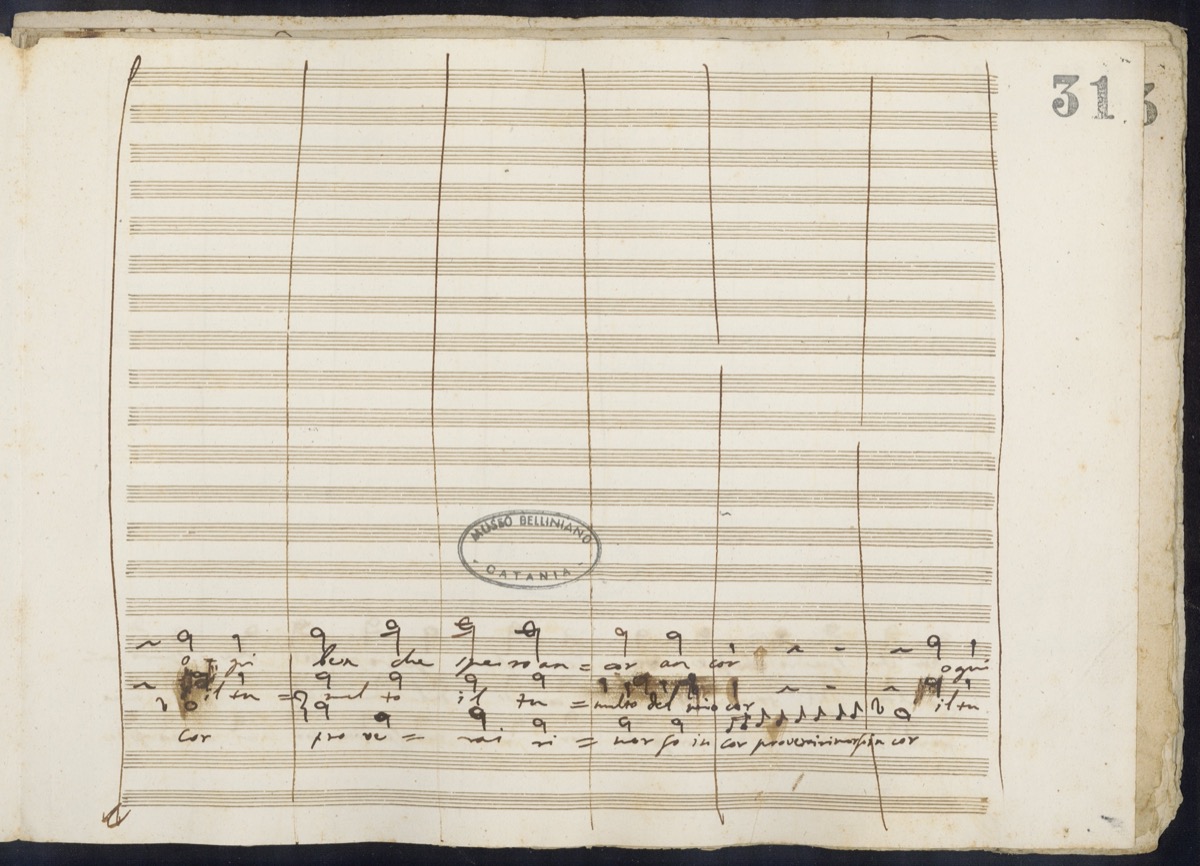 31
MUSEO BELLINIANO
- CATANIA -
ben che spero an = cor an cor ogni
il tu = mul to il tu = multo del mio cor il tu
cor pro ve = rai ri = mor so in cor proverai rimorso in cor